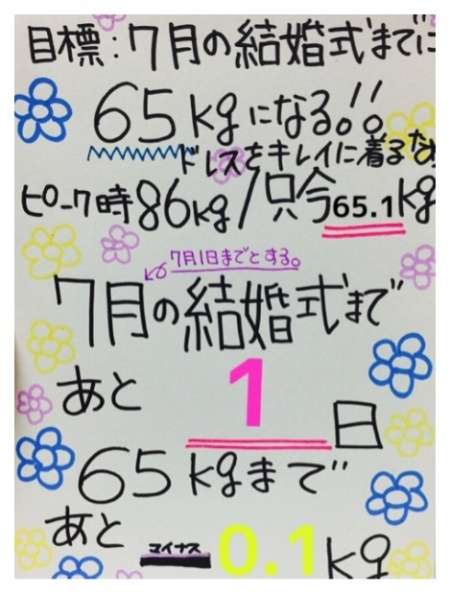 目標:7月の結婚式までに
65kgになる!!
ドレスをキレイに着るため
ピーク時86kg/只今65.1kg
7月1日までとする。
7月の結婚式まで
あと 1 日
65kgまで
あと マイナス 0.1kg